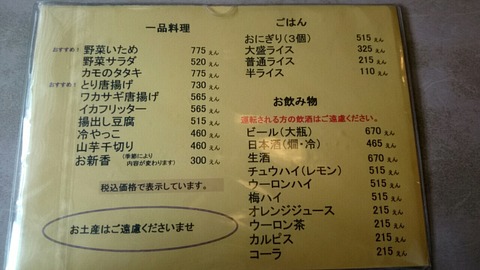 一品料理
おすすめ! 野菜いため 775えん
野菜サラダ 520えん
カモのタタキ 775えん
おすすめ! とり唐揚げ 730えん
ワカサギ唐揚げ 565えん
イカフリッター 565えん
揚出し豆腐 515えん
冷やっこ 460えん
山芋千切り 460えん
お新香 (季節により 300えん
内容が変わります)
税込価格で表示しています。
お土産はご遠慮くださいませ
ごはん
おにぎり(3個) 515えん
大盛ライス 325えん
普通ライス 215えん
半ライス 110えん
お飲み物
運転される方の飲酒はご遠慮ください。
ビール(大瓶) 670えん
日本酒(燗・冷) 465えん
生酒 670えん
チュウハイ(レモン) 515えん
ウーロンハイ 515えん
梅ハイ 515えん
オレンジジュース 215えん
ウーロン茶 215えん
カルピス 215えん
コーラ 215えん